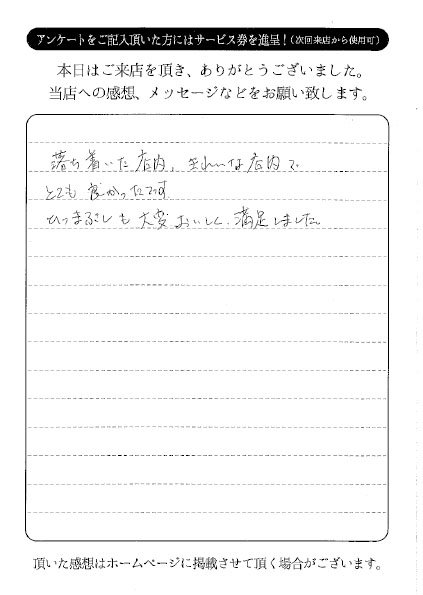 アンケートをご記入頂いた方にはサービス券を進呈！（次回来店から使用可）
本日はご来店を頂き、ありがとうございました。
当店への感想、メッセージなどをお願い致します。
落ち着いた店内，きれいな店内で
とても良かったです
ひつまぶしも大変おいしく満足しました。
頂いた感想はホームページに掲載させて頂く場合がございます。